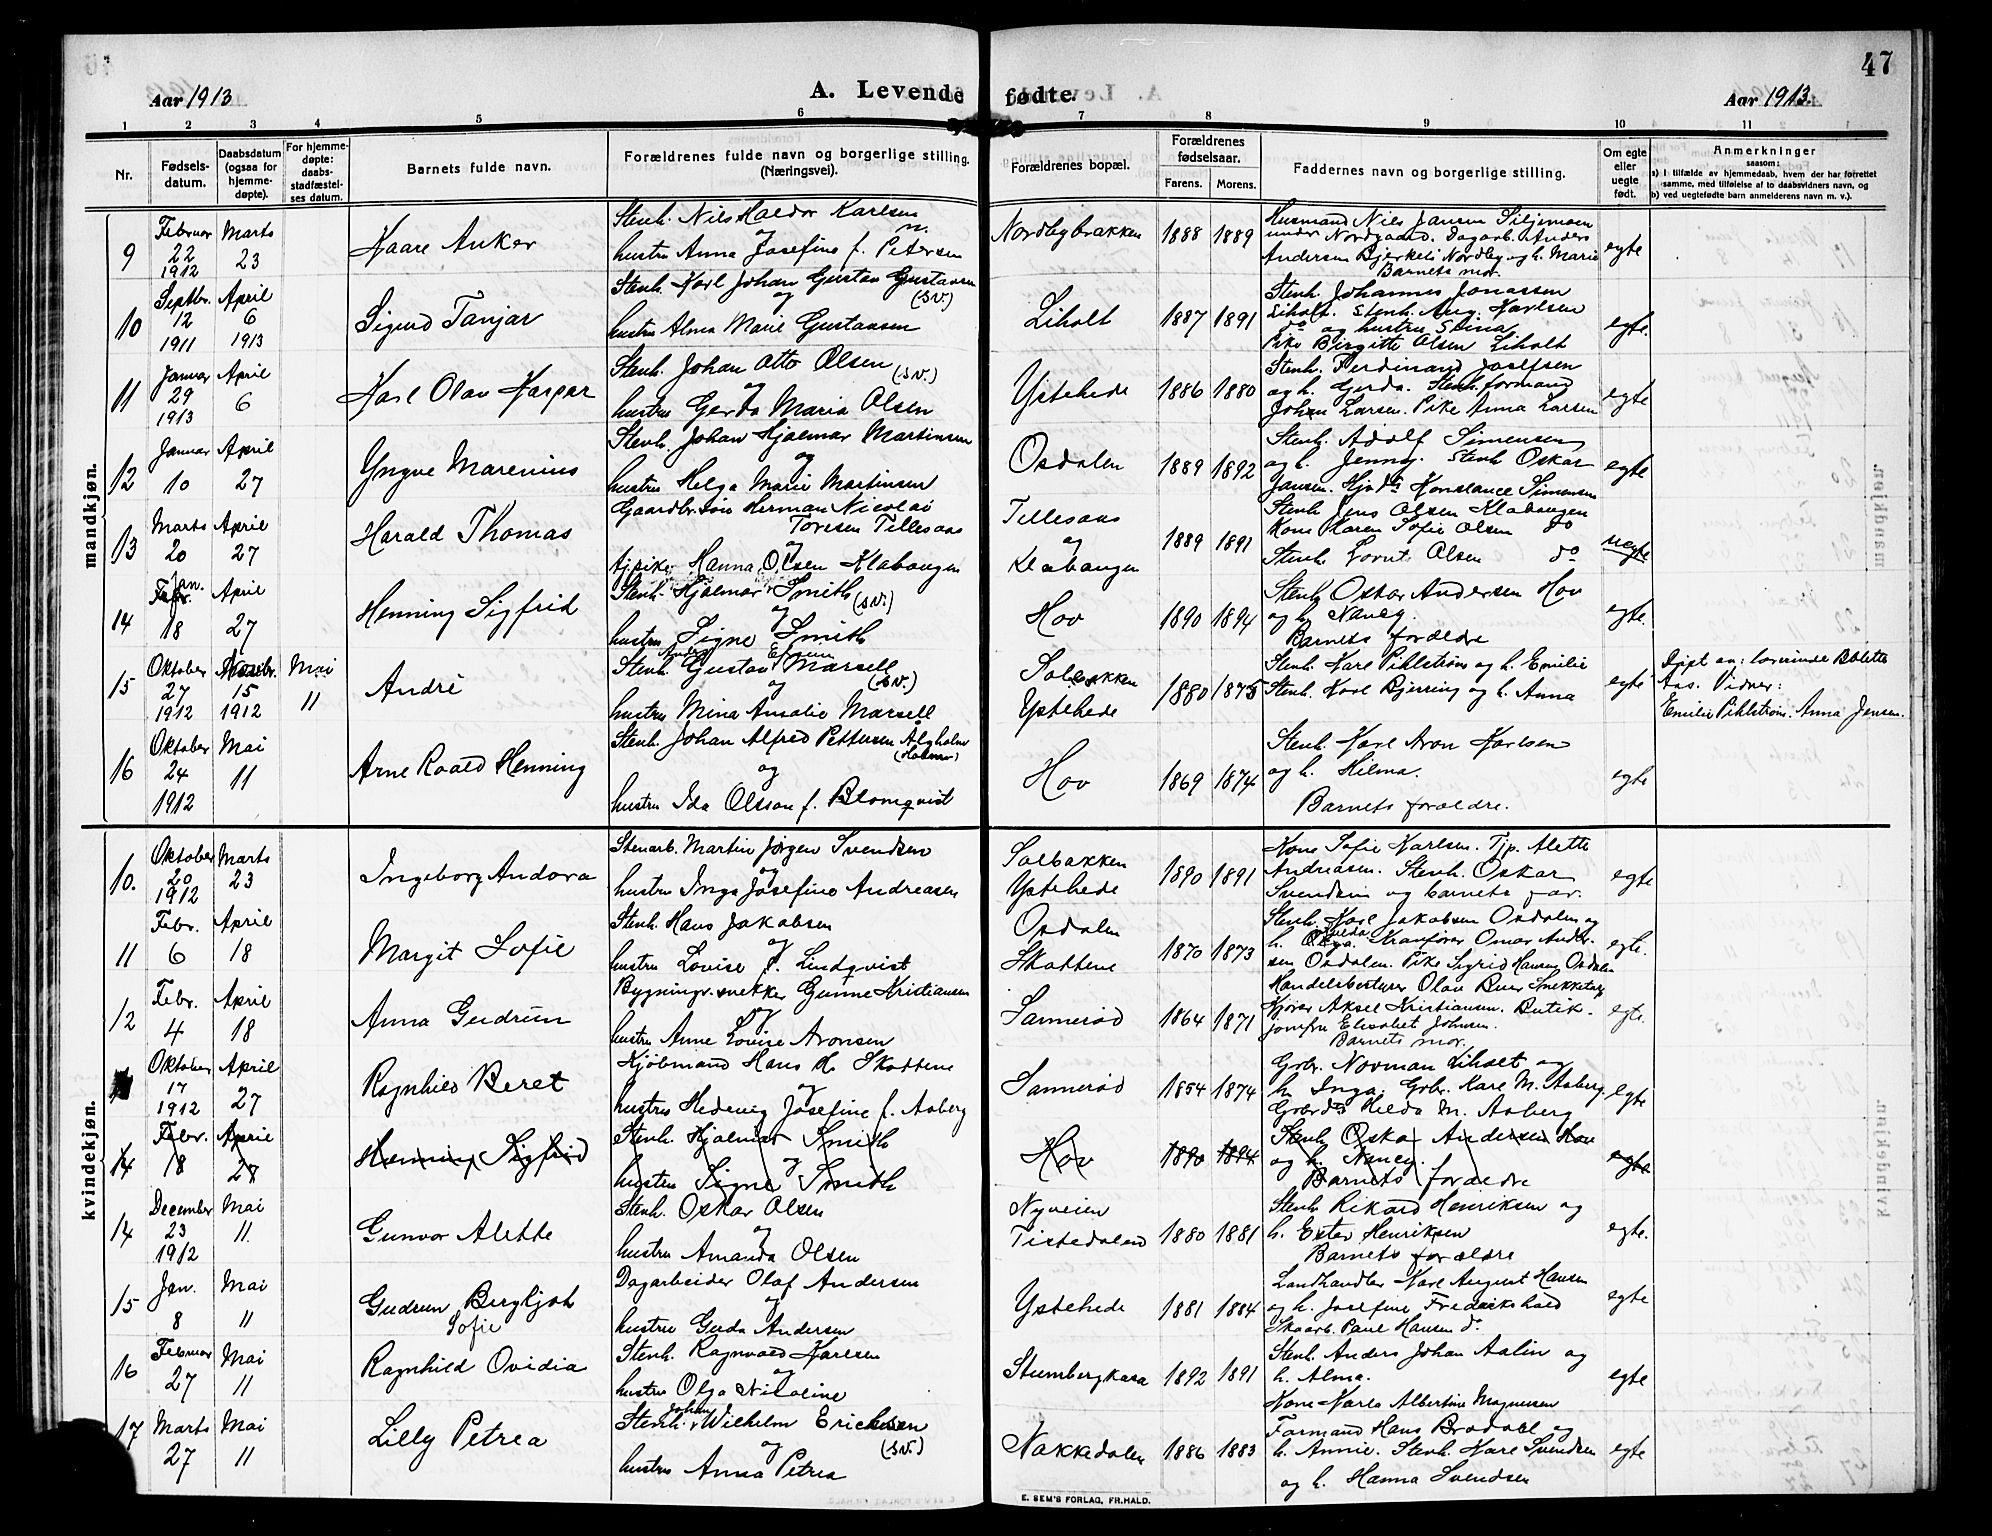 47
A. Levende fødte.
Aar 1913
Aar 1913.
1 2 3 4 5 6 7 8 9 10 11
Nr.
Fødsels-
datum.
Daabsdatum
(ogsaa for
hjemme-
døpte).
For hjemme-
døpte:
daabs-
stadfæstel-
ses datum.
Barnets fulde navn.
Forældrenes fulde navn og borgerlige stilling.
(Næringsvei).
Forældrenes bopæl.
Forældrenes
fødselsaar.
Farens. Morens.
Faddernes navn og borgerlige stilling.
Om egte
eller
uegte
født.
Anmerkninger
saasom:
a) I tilfælde av hjemmedaab, hvem der har forrettet
samme, med tilføielse af to daabsvidners navn, og
b) ved uegtefødte børn anmelderens navn m. v.).
mandkjøn.
9
Februar
22
1912
Marts
23
Kaare Anker
Stenh. Nils Haldor Karlsen
hustru Anna Josefine f. Petersen
Nordbybrakken
1888 1889
Husmand Nils Jansen Siljemoen
under Nordgaard. Dagarb. Anders
Andersen Bjerkeli Nordby og h. Marie
Barnets mor.
egte
10
Septbr.
12
1911
April
6
1913
Sigurd Tanjar
Stenh. Karl Johan Gustav Gustavsen
og (s.v.)
hustru Alma Marie Gustavsen
Liholt
1887 1891
Stenh. Johannes Jonassen
Liholt. Stenh. Aug. Karlsen
do og hustru Stina
Pike Birgitte Olsen Liholt
egte.
11
Januar
29
1913
April
6
Karl Olav Kaspar
Stenh. Johan Otto Olsen (s.v.)
og
hustru Gerda Maria Olsen
Ystehede
1886 1880
Stenh. Ferdinand Josefsen
og h. Gerda. Stenh.formand
Johan Larsen. Pike Anna Larsen
egte
12
Januar
10
April
27
Yngve Marenius
Stenh. Johan Hjalmar Martinsen
og
hustru Helga Marie Martinsen
Osdalen
1889 1892
Stenh. Adolf Simensen
og h. Jenny. Stenh Oskar
Jansen. Hjds Konstance Simensen
egte
13
Marts
20
April
27
Harald Thomas
Gaardbr.søn Herman Nicolai
Toresen Tillesaas
og
tjpike Hanna Olsen Klabaugen
Tillesaas
og
Klabaugen
1889 1891
Stenh Jens Olsen Klabaugen
Kone Karen Sofie Olsen do
Stenh. Lornt Olsen do
uegte
14
Jan.
18
April
27
Henning Sigfrid
Stenh. Hjalmar Smith
og (s.v.)
hustru Signe Smith
Hov
1890 1894
Stenh Oskar Andersen Hov
og h. Nancy.
Barnets forældre
egte.
15
Oktober
27
1912
Novbr.
15
1912
Mai
11
André
Stenh. Gustav Marsell
og (s.v.)
hustru Mina Amalie Marsell
Solbakken
Ystehede
1880 1875
Stenh. Karl Pihlstrøm og h. Emilie
Stenh. Karl Bjerring og h. Anna
egte
Døpt av: lærerinde Bolette
Aas. Vidner:
Emilie Pihlstrøm. Anna Jensen.
16
Oktober
24
1912
Mai
11
Arne Roald Henning
Stenh. Johan Alfred Pettersen Algholm
og
hustru Ida Olsson f. Blomqvist
Hov
1869 1874
Stenh. Karl Aron Karlsen
og h. Hilma.
Barnets forældre.
egte
kvindekjøn.
10.
Oktober
20
1912
Marts
23
Ingeborg Andora
Stenarb. Martin Jørgen Svendsen
og
hustru Inga Josefine Andreasen
Solbakken
Ystehede
1890 1891
Kone Sofie Karlsen. Tjp. Alette
Andreasen. Stenh. Oskar
Svendsen og barnets far.
egte
11
Febr.
6
April
18
Margit Sofie
Stenh. Hans Jakobsen
og
hustru Lovise f. Lindqvist
Osdalen
Skottene
1870 1873
Stenh. Karl Jakobsen Osdalen og
h. Kranfører Omar Ander-
sen Osdalen. Pike Sigrid Hansen Osdalen
egte.
12
Febr.
4
April
18
Anna Gudrun
Bygnings.snekker Gunne Kristiansen
og
hustru Anne Lovise Aronsen
Sannerød
1864 1871
Handelsbestyrer Olav Buer Snekketorp
Kjører Aksel Kristiansen. Butik-
jomfru Elisabet Johnsen.
Barnets mor.
egte.
Oktober
17
1912
April
27
Ragnhild Beret
Kjøbmand Hans H. Skottene
og
hustru Hedevig Josefine f. Aaberg
Sannerød
1854 1874
Grbr. Norman Liholt og
h. Inga. Grbr. Karl M. Aaberg.
Grbrds Hilda M. Aaberg
egte
14
Febr.
18
April
28
Henning Sigfrid
Stenh. Hjalmar Smith
og
hustru Signe Smith
Hov
1890 1894
Stenh Oskar Andersen Hov
og h. Nancy.
Barnets forældre
egte
14
December
23
1912
Mai
11.
Gunvor Alette
Stenh. Oskar Olsen
og
hustru Amanda Olsen
Nyveien
Tistedalen
1880 1881
Stenh Rikard Henriksen og
h. Ester Henriksen
Barnets forældre
egte.
15
Jan.
8
Mai
11
Gudrun Bergljot
Sofie
Dagarbeider Olaf Andersen
og
hustru Gerda Andersen
Ystehede
1881 1884
Landhandler Karl August Hansen
og h. Josefine Fredrikshald
Skoarb. Paul Hansen do.
egte
16
Februar
27
Mai
11
Ragnhild Ovidia
Stenh. Ragnvald Karlsen
og
hustru Olga Nikoline
Stumbergkasa
1892 1891
Stenh. Anders Johan Aalin og
h. Alma.
Kone Karla Albertine Magnusen
egte
17
Marts
27
Mai
11
Lilly Petrea
Johan
Stenh. Wilhelm Ericksen
og (s.v.)
hustru Anna Petrea
Nakkedalen
1886 1883
Formand Hans Brodahl og
h. Annie. Stenh. Karl Svendsen
og h. Hanna Svendsen
egte
E. SEM'S FORLAG, FR.HALD.